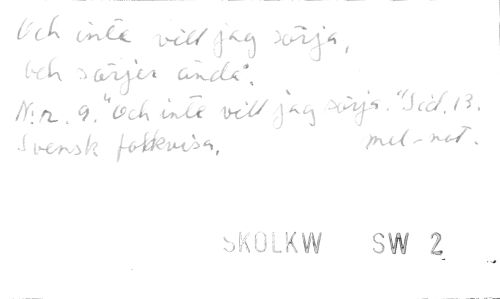 Och inte vill jag sörja,
och sörjer ändå.
N:r. 9. "Och inte vill jag sörja." Sid. 13.
Svensk folkvisa. mel-not.
SKOLKW SW 2